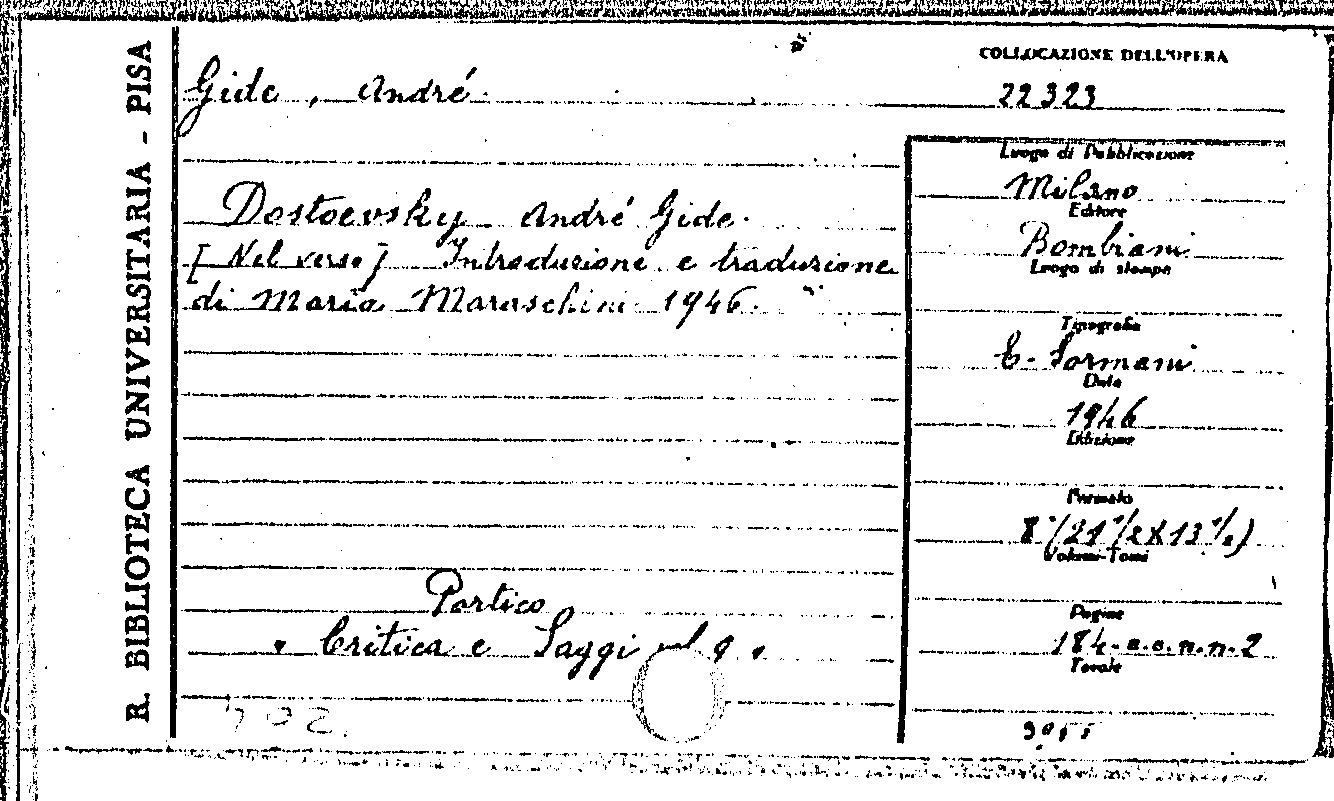 R. BIBLIOTECA UNIVERSITARIA - PISA
Gide, André
Dostoevsky André Gide.
[Nel verso] Introduzione e traduzione
di Maria Maraschini 1946.
Portico
" Critica e Saggi vol 9 "
702.
COLLOCAZIONE DELL'OPERA
22323
Luogo di Pubblicazione
Milano
Editore
Bompiani
Luogo di stampa
Tipografia
E. Sormani
Data
1946
Edizione
Formato
8° (21 1/2 X 13 1/2)
Volumi-Tomi
Pagine
184. n.n. 2
Tavole